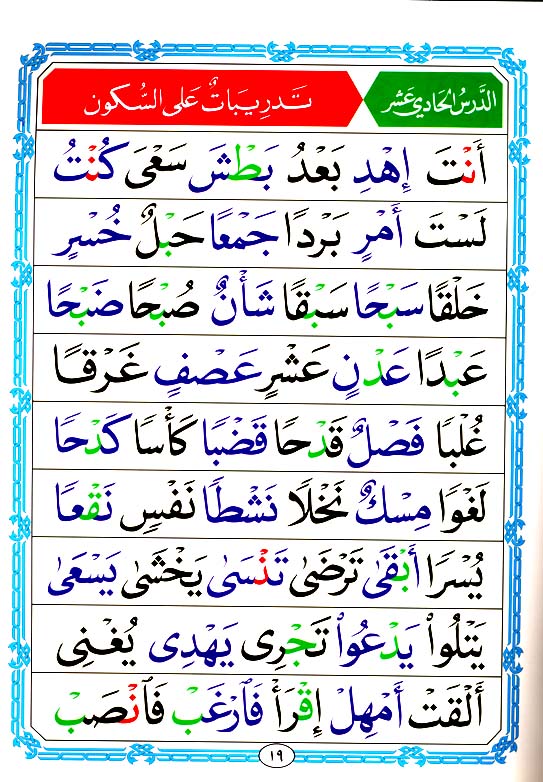 الدَّرْسُ الحَادِي عَشَر تَدرِيبَاتٌ عَلَى السُّكُون
أَنْتَ إِهْدِ بَعْدُ بَطْشَ سَعْىَ كُنْتُ
لَسْتَ أَمْرٍ بَرْدًا جَمْعًا حَبْلٌ خُسْرٍ
خَلْقًا سَبْحًا سَبْقًا شَأْنٌ صُبْحًا ضَبْحًا
عَبْدًا عَدْنٍ عَشْرٍ عَصْفٍ غَرْقًا
غُلْبًا فَصْلٌ قَدْحًا قَضْبًا كَأْسًا كَدْحًا
لَغْوًا مِسْكٌ نَخْلًا نَشْطًا نَفْسٍ نَقْعًا
يُسْرًا أَبْقَىٰ تَرْضَىٰ تَنْسَىٰ يَخْشَىٰ يَسْعَىٰ
يَتْلُوا۟ يَدْعُوا۟ تَجْرِى يَهْدِى يُغْنِى
أَلْقَتْ أَمْهِلْ إِقْرَأْ فَٱرْغَبْ فَٱنْصَبْ
١٩